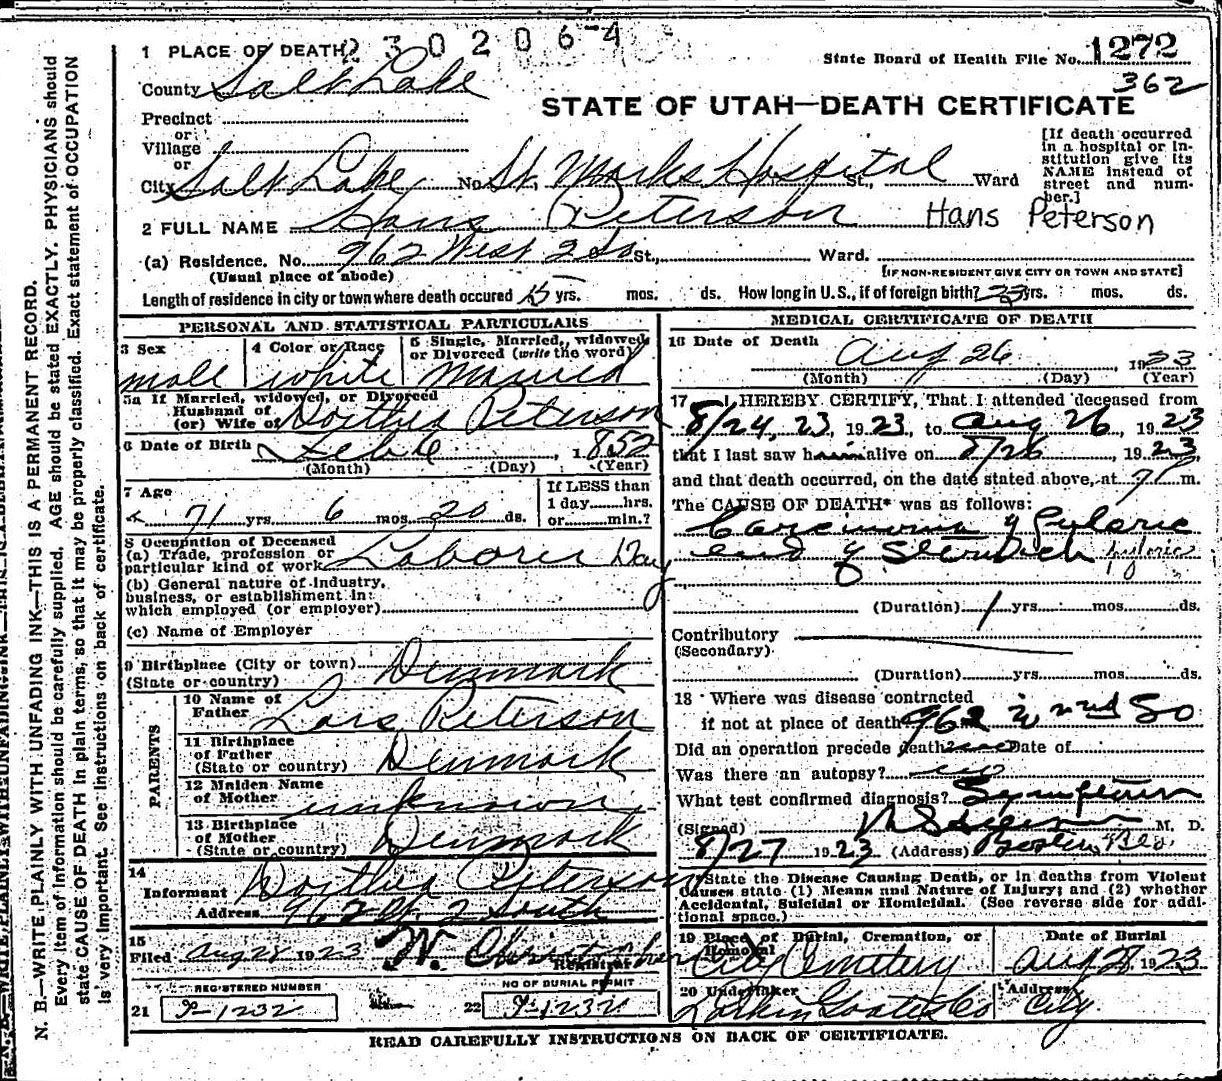 2 3 0 2 0 6 4
1 PLACE OF DEATH
State Board of Health File No. 1272
362
County Salt Lake
STATE OF UTAH—DEATH CERTIFICATE
Precinct
or
Village
or
City Salt Lake No. St. Marks Hospital St., Ward
[If death occurred
in a hospital or in-
stitution give its
NAME instead of
street and num-
ber.]
2 FULL NAME Hans Peterson Hans Peterson
(a) Residence. No. 962 West 2 So St., Ward.
(Usual place of abode)
[IF NON-RESIDENT GIVE CITY OR TOWN AND STATE]
Length of residence in city or town where death occured 15 yrs. mos. ds. How long in U.S., if of foreign birth? yrs. mos. ds.
PERSONAL AND STATISTICAL PARTICULARS
3 Sex
male
4 Color or Race
white
5 Single, Married, widowed,
or Divorced (write the word)
Married
5a If Married, widowed, or Divorced
Husband of
(or) Wife of Dorthea Peterson
6 Date of Birth Feb 6, 1852
(Month) (Day) (Year)
7 Age
71 yrs 6 mos 20 ds.
If LESS than
1 day......hrs.
or......min.?
8 Occupation of Deceased
(a) Trade, profession or
particular kind of work Laborer Day
(b) General nature of industry,
business, or establishment in
which employed (or employer)
(c) Name of Employer
9 Birthplace (City or town) Denmark
(State or country)
PARENTS
10 Name of
Father Lars Peterson
11 Birthplace
of Father Denmark
(State or country)
12 Maiden Name
of Mother unknown
13 Birthplace
of Mother Denmark
(State or country)
14
Informant Dorthea Peterson
Address 962 W. 2 South
15
Filed Aug 28 1923 W. Christopherson
Registrar
REGISTERED NUMBER
21 I-1232
NO OF BURIAL PERMIT
22 I-1232
MEDICAL CERTIFICATE OF DEATH
16 Date of Death Aug 26 1923
(Month) (Day) (Year)
17 I HEREBY CERTIFY, That I attended deceased from
8/24, 23, 1923, to Aug 26, 1923
that I last saw him alive on 8/26, 1923,
and that death occurred, on the date stated above, at m.
The CAUSE OF DEATH* was as follows:
Carcinoma of Pyloric
end of Stomach pyloric
(Duration) 1 yrs. mos. ds.
Contributory
(Secondary)
(Duration) yrs. mos. ds.
18 Where was disease contracted
if not at place of death? 962 W 2nd So
Did an operation precede death? Date of
Was there an autopsy? no
What test confirmed diagnosis? Symptoms
(Signed) M. D.
8/27 1923 (Address) Boston Bld.
*State the Disease Causing Death, or in deaths from Violent
Causes state (1) Means and Nature of Injury; and (2) whether
Accidental, Suicidal or Homicidal. (See reverse side for addi-
tional space.)
19 Place of Burial, Cremation, or
Removal
City Cemetery
Date of Burial
Aug 28, 1923
20 Undertaker
Larkin Co
Address
City.
READ CAREFULLY INSTRUCTIONS ON BACK OF CERTIFICATE.
N. B.—WRITE PLAINLY WITH UNFADING INK—THIS IS A PERMANENT RECORD.
Every item of information should be carefully supplied. AGE should be stated EXACTLY. PHYSICIANS should
state CAUSE OF DEATH in plain terms, so that it may be properly classified. Exact statement of OCCUPATION
is very important. See instructions on back of certificate.